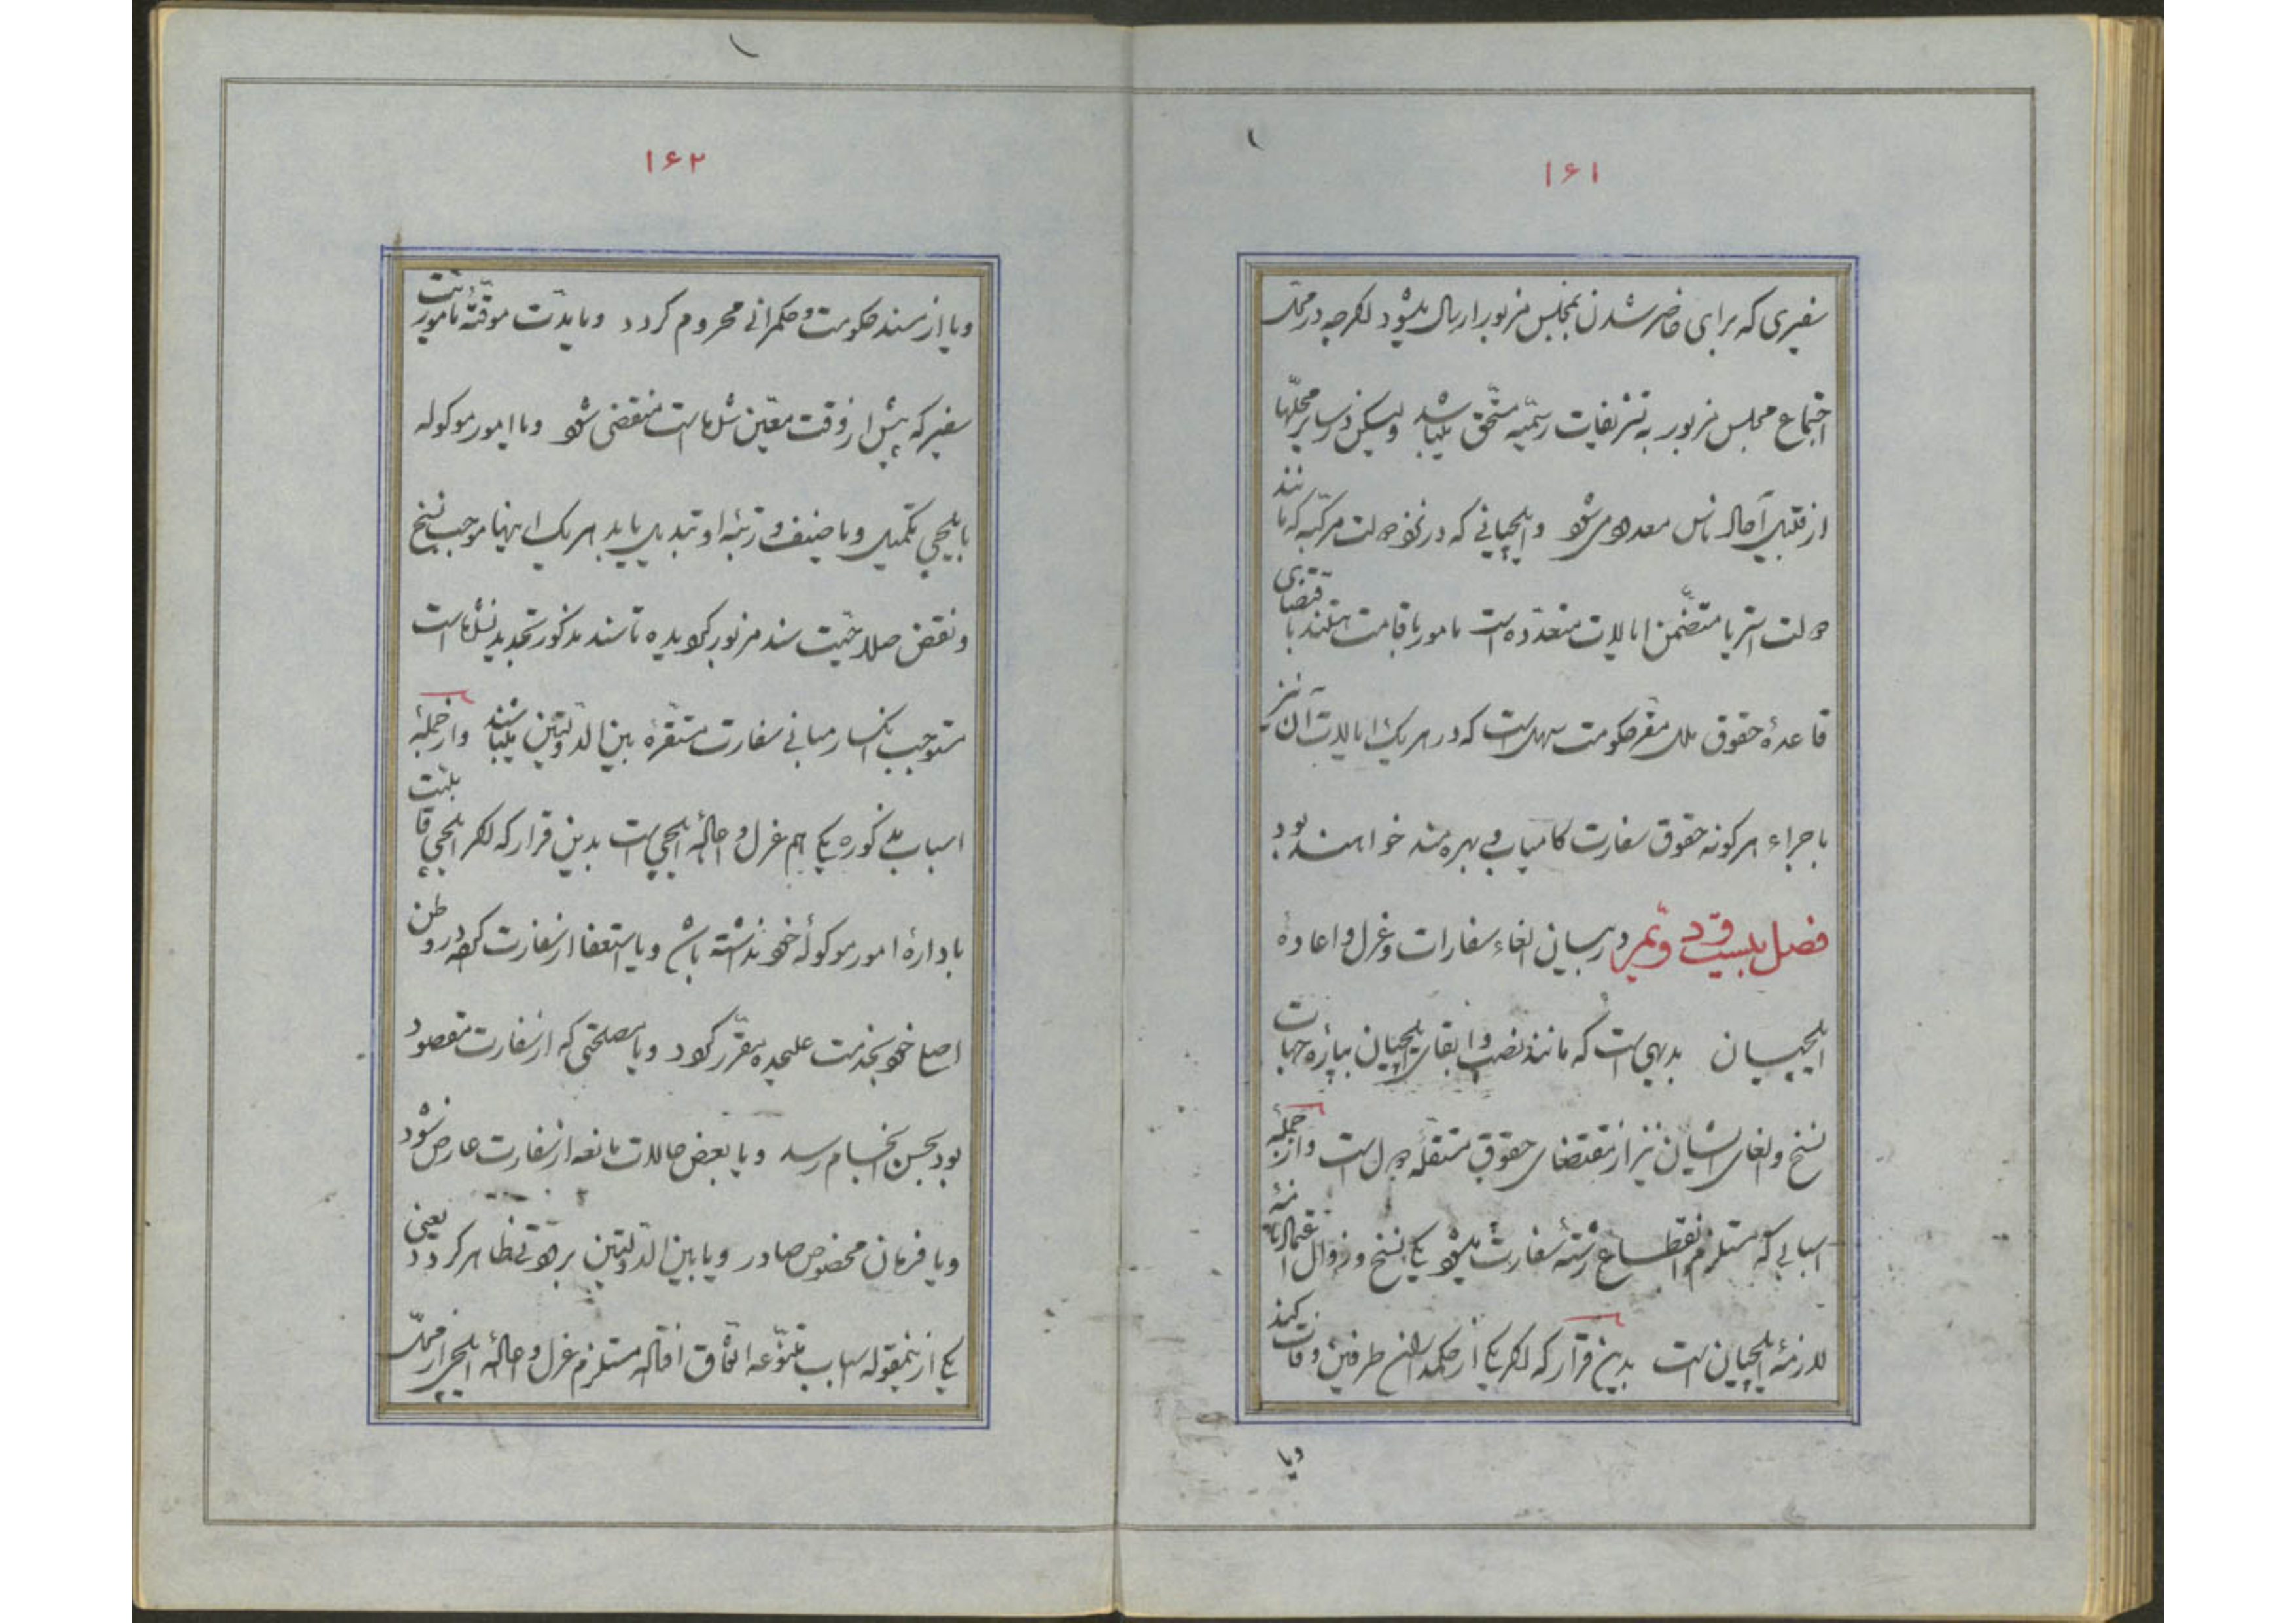 ۱۶۱
سفیری که برای حاضر شدن بمجلس مزبور ارسال میشود اگرچه در محل
اجتماع مجلس مزبور به تشریفات رسمیّه مستحق میباشد ولیکن در سایر محلّها
از قبیل آحاد ناس معدود میشود و ایلچیانی که در نزد دولت مرکّبه که مانند
دولت استریا متضمّن ایالات متعدّده است مامور باقامت هستند باقتضای
قاعدهٔ حقوق ملل مقرّ حکومت سهل است که در هر یک ایالات آن نیز
باجراء هر گونه حقوق سفارت کامیاب و بهره مند خواهند بود
فصل بیست و در بیان الغاء سفارات و عزل و اعادهٔ
ایلچیان بدیهی است که مانند نصب و ابقای ایلچیان بپاره جهات
نسخ و الغای ایشان نیز از مقتضای حقوق مستقلّه دول است و از جملهٔ
اسبابی که مستلزم انقطاع رشتهٔ سفارت میشود یکی نسخ و زوال اعتمادنامهٔ
لازمهٔ ایلچیان است بدین قرار که اگر یکی از حکمداران طرفین وفات کند
ویا
۱۶۲
ویا از مسند حکومت و حکمرانی محروم گردد ویا مدّت موقّتهٔ ماموریّت
سفیر که پیش از وقت معیّن شده است منقضی شود ویا امور موکوله
بایلچی تکمیل ویا صنف و رتبهٔ او تبدیل یابد هر یک اینها موجب نسخ
و نقض صلاحیّت سند مزبور گردیده تا سند مذکور تجدید نشده است
مستوجب انکسار مبانی سفارت مستقرّهٔ بین الدولتین میباشد و از جملهٔ
اسباب مذکوره یکی هم عزل و احالهٔ ایلچی است بدین قرار که اگر ایلچی قابلیّت
بادارهٔ امور موکولهٔ خود نداشته باشد ویا استعفا از سفارت کرده در وطن
اصلی خود بخدمت علیحده مقرّر گردد ویا مصلحتی که از سفارت مقصود
بود بحسن انجام رسد ویا بعض حالات مانعه از سفارت عارض شود
ویا فرمان مخصوص صادر ویا بین الدولتین برودتی ظاهر گردد یعنی
یکی از اینمقوله اسباب متنوّعه اتّفاق افتاده مستلزم عزل و احالهٔ ایلچی از محلّ